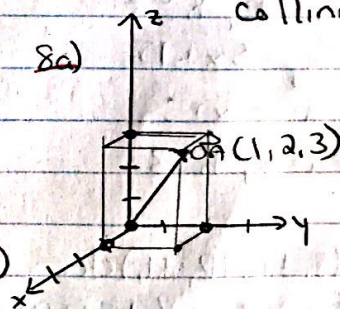 collin
z
8a)
OA (1, 2, 3)
y
)
x